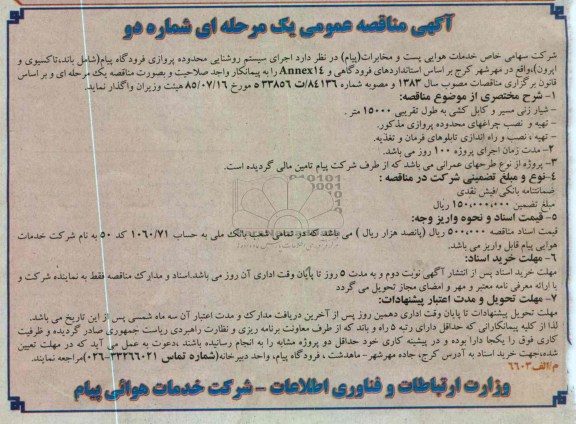 آگهی مناقصه عمومی یک مرحله ای شماره دو
شرکت سهامی خاص خدمات هوایی پست و مخابرات(پیام) در نظر دارد اجرای سیستم روشنایی محدوده پروازی فرودگاه پیام(شامل باند،تاکسیوی و
اپرون)،واقع در مهرشهر کرج بر اساس استانداردهای فرودگاهی و Annex۱٤ را به پیمانکار واجد صلاحیت و بصورت مناقصه یک مرحله ای و بر اساس
قانون برگزاری مناقصات مصوب سال ۱۳۸۳ و مصوبه شماره ۸٤۱۳۶/ت ۳۳۸۵۶ ه مورخ ۸۵/۰۷/۱۶ هیئت وزیران واگذار نماید.
۱- شرح مختصری از موضوع مناقصه:
- شیار زنی مسیر و کابل کشی به طول تقریبی ۱۵۰۰۰ متر .
- تهیه و نصب چراغهای محدوده پروازی مذکور.
- تهیه ، نصب و راه اندازی تابلوهای فرمان و تغذیه.
۲- مدت زمان اجرای پروژه ۱۰۰ روز می باشد.
۳- پروژه از نوع طرحهای عمرانی می باشد که از طرف شرکت پیام تامین مالی گردیده است.
٤-نوع و مبلغ تضمینی شرکت در مناقصه :
ضمانتنامه بانکی/فیش نقدی
مبلغ تضمین ۱۵۰،۰۰۰،۰۰۰ ریال
۵- قیمت اسناد و نحوه واریز وجه:
قیمت اسناد مناقصه ۵۰۰،۰۰۰ ریال (پانصد هزار ریال ) می باشد که در تمامی شعب بانک ملی به حساب ۱۰۶۰/۷۱ کد ۵۰ به نام شرکت خدمات
هوایی پیام قابل واریز می باشد.
۶- مهلت خرید اسناد:
مهلت خرید اسناد پس از انتشار آگهی نوبت دوم و به مدت ۵ روز تا پایان وقت اداری آن روز می باشد.اسناد و مدارک مناقصه فقط به نماینده شرکت و
با ارائه معرفی نامه معتبر و مهر و امضای مجاز تحویل می گردد
۷- مهلت تحویل و مدت اعتبار پیشنهادات:
مهلت تحویل پیشنهادات تا پایان وقت اداری دهمین روز پس از آخرین دریافت مدارک و مدت اعتبار آن سه ماه شمسی پس از این تاریخ می باشد.
لذا از کلیه پیمانکارانی که حداقل دارای رتبه ۵ راه و باند که از طرف معاونت برنامه ریزی و نظارت راهبردی ریاست جمهوری صادر گردیده و ظرفیت
کاری فوق را یکجا دارا بوده و در پیشینه کاری خود حداقل دو پروژه مشابه را به انجام رسانیده باشند ،دعوت به عمل می آید که در مهلت تعیین
شده،جهت خرید اسناد به آدرس کرج، جاده مهرشهر - ماهدشت ، فرودگاه پیام، واحد دبیرخانه(شماره تماس ۳۳۲۶۶۰۲۱-۰۲۶)مراجعه نمایند.
م/الف ۶۶۰۳
وزارت ارتباطات و فناوری اطلاعات - شرکت خدمات هوائی پیام